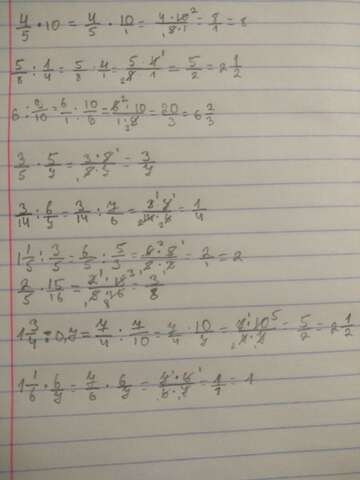 4/5 · 10 = 4/5 · 10/1 = 4·10²/₁5·1 = 8/1 = 8
5/8 : 1/4 = 5/8 · 4/1 = 5·4¹/₂8·1 = 5/2 = 2 1/2
6 : 9/10 = 6/1 · 10/9 = 6²·10/1·₃9 = 20/3 = 6 2/3
3/5 · 5/7 = 3·5¹/₁5·7 = 3/7
3/14 : 6/7 = 3/14 · 7/6 = 3¹·7¹/₂14·6₂ = 1/4
1 1/5 : 3/5 = 6/5 : 5/3 = 6²·5¹/5·3 = 2/1 = 2
2/5 · 15/16 = 2¹·15³/₁5·16₈ = 3/8
1 3/4 : 0,7 = 7/4 : 7/10 = 7/4 · 10/7 = 7¹·10⁵/₂4·7 = 5/2 = 2 1/2
1 1/6 · 6/7 = 7/6 · 6/7 = 7¹·6¹/6·7 = 1/1 = 1